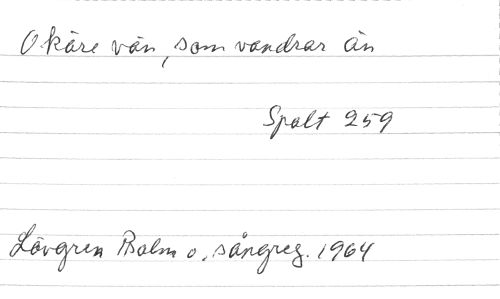 O käre vän, som vandrar än
Spalt 259
Lövgren Psalm o. sångreg. 1964